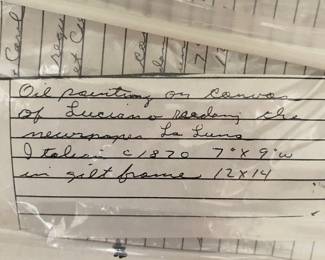 Oil painting on canvas
of Luciano reading the
newspaper La Luna
Italian c1870 7"x 9"w
in gilt frame 12x14